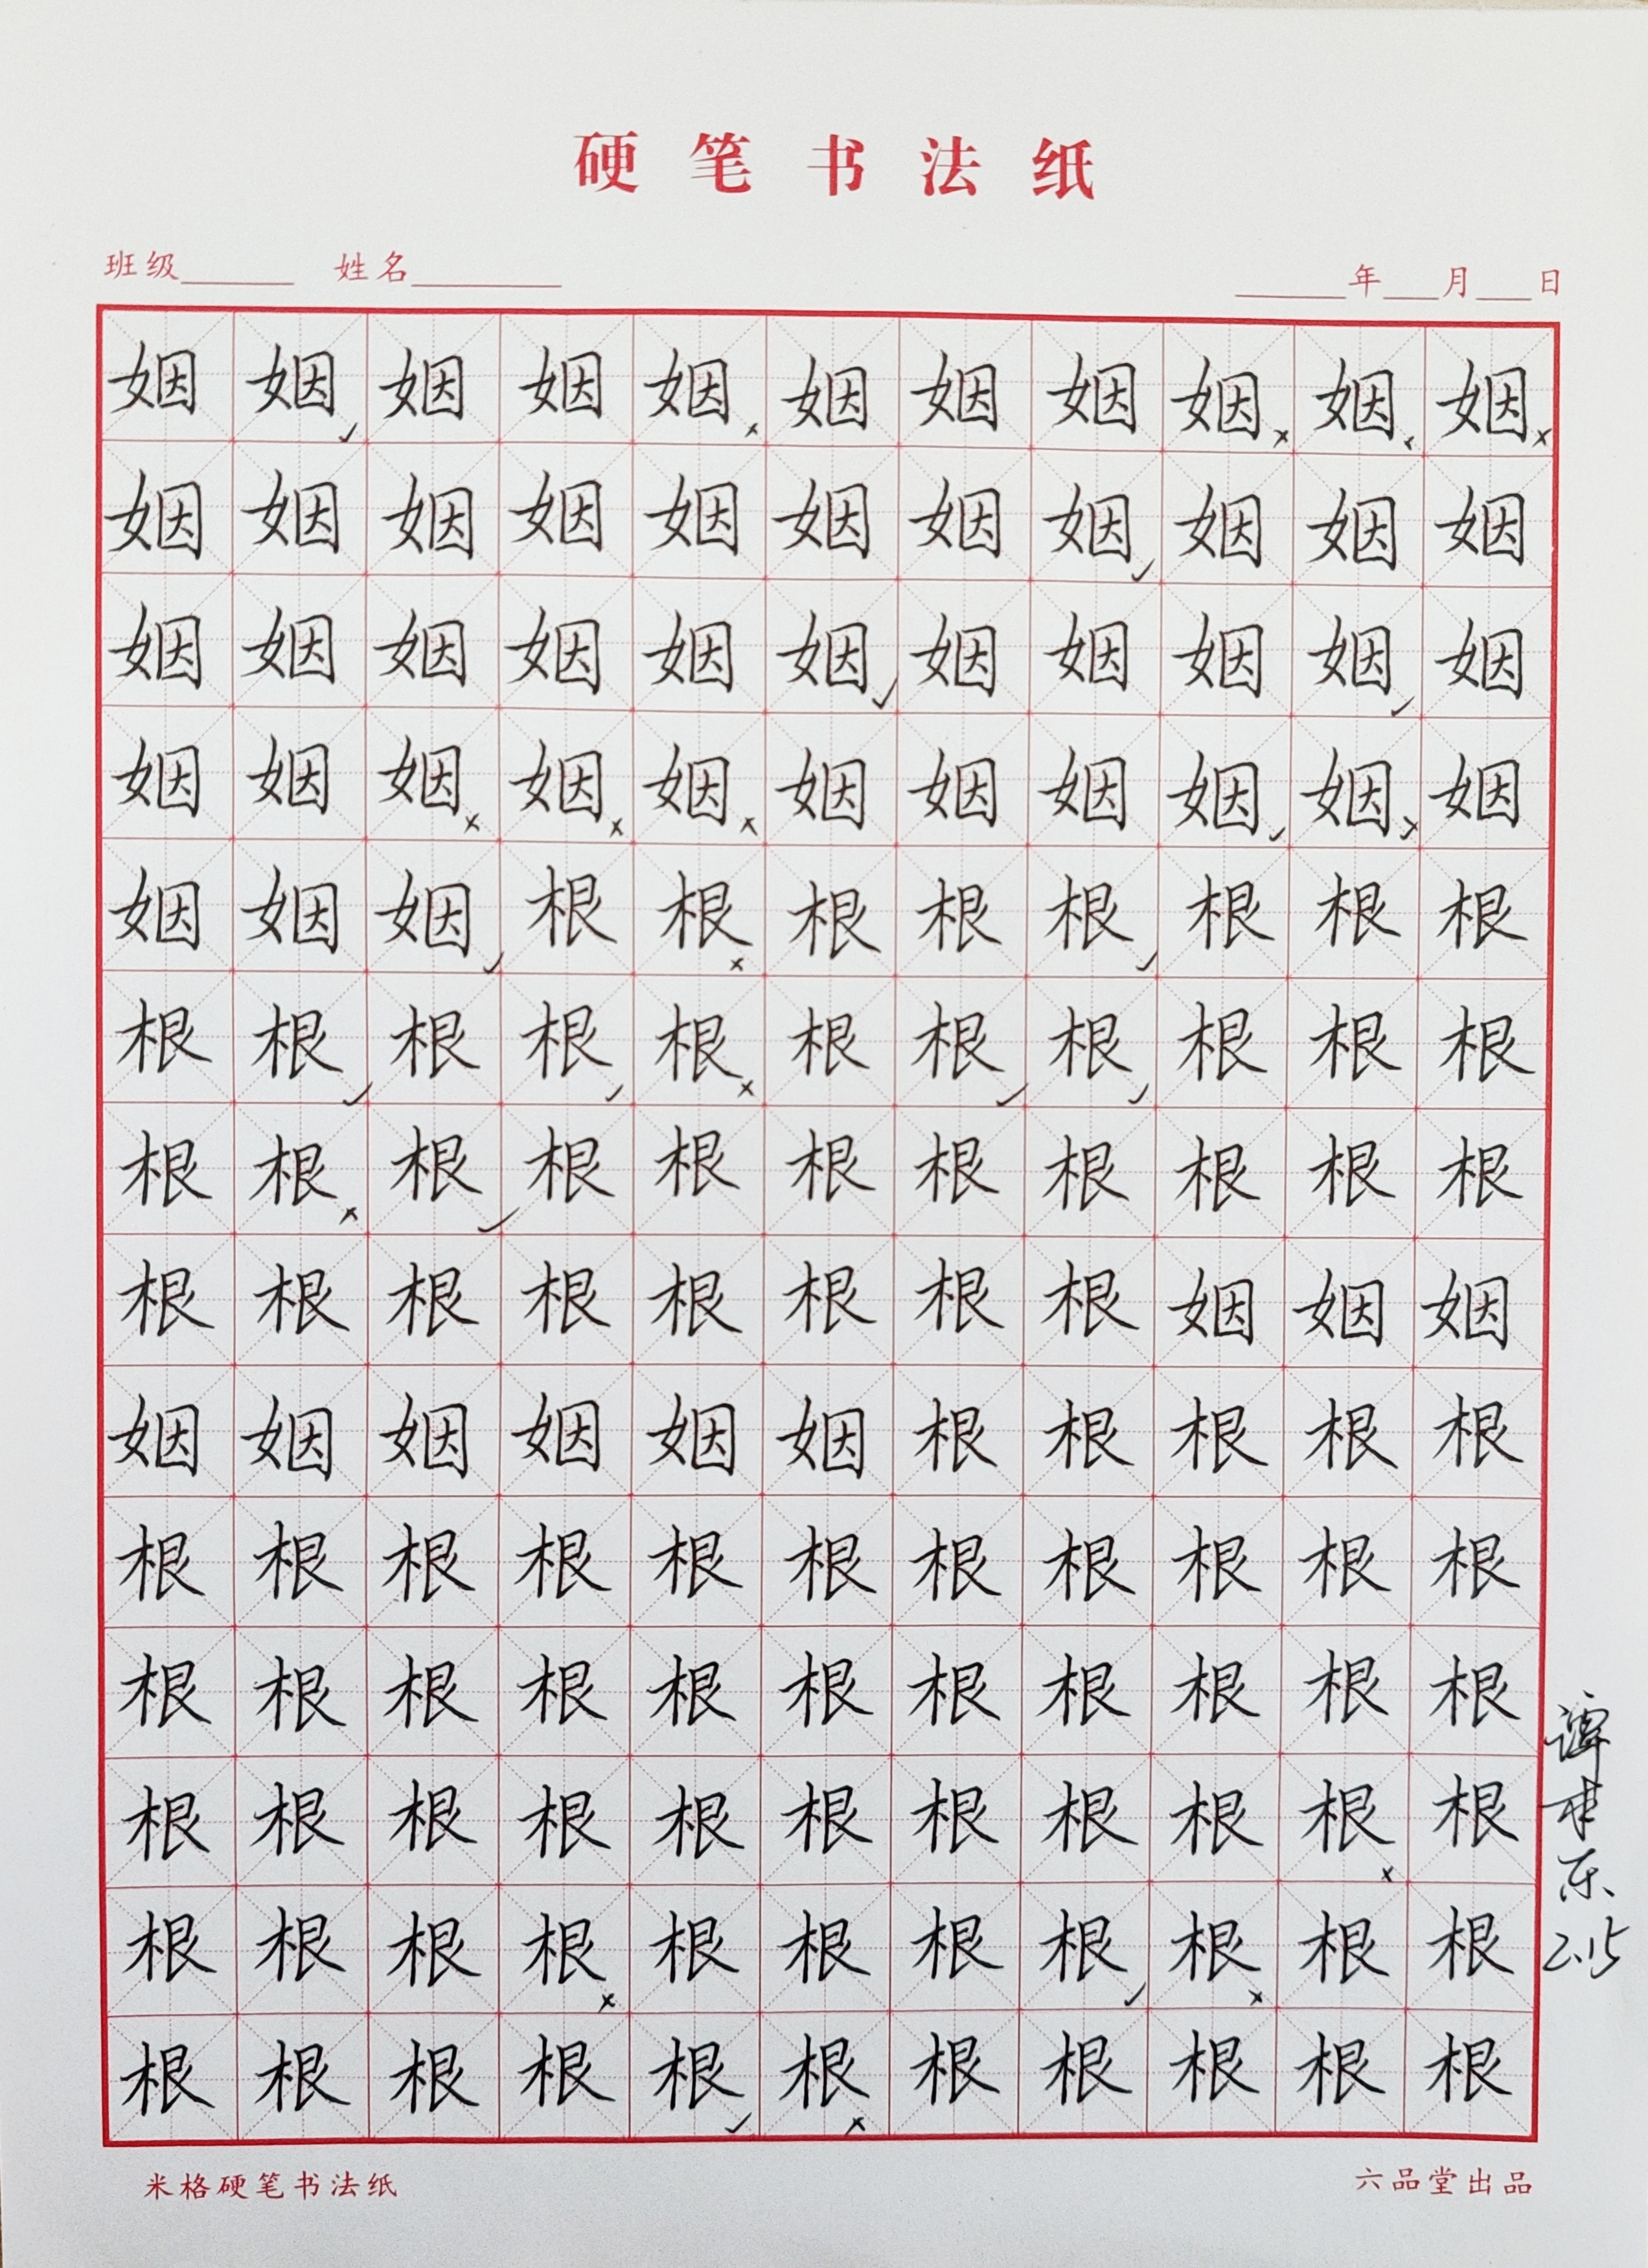 硬笔书法纸
班级 姓名 年 月 日
姻姻姻姻姻姻姻姻姻姻姻
姻姻姻姻姻姻姻姻姻姻姻
姻姻姻姻姻姻姻姻姻姻姻
姻姻姻姻姻姻姻姻姻姻姻
姻姻姻根根根根根根根根
根根根根根根根根根根根
根根根根根根根根根根根
根根根根根根根根姻姻姻
姻姻姻姻姻姻根根根根根
根根根根根根根根根根根
根根根根根根根根根根根
根根根根根根根根根根根
根根根根根根根根根根根
根根根根根根根根根根根
谭
东
2.15
米格硬笔书法纸 六品堂出品